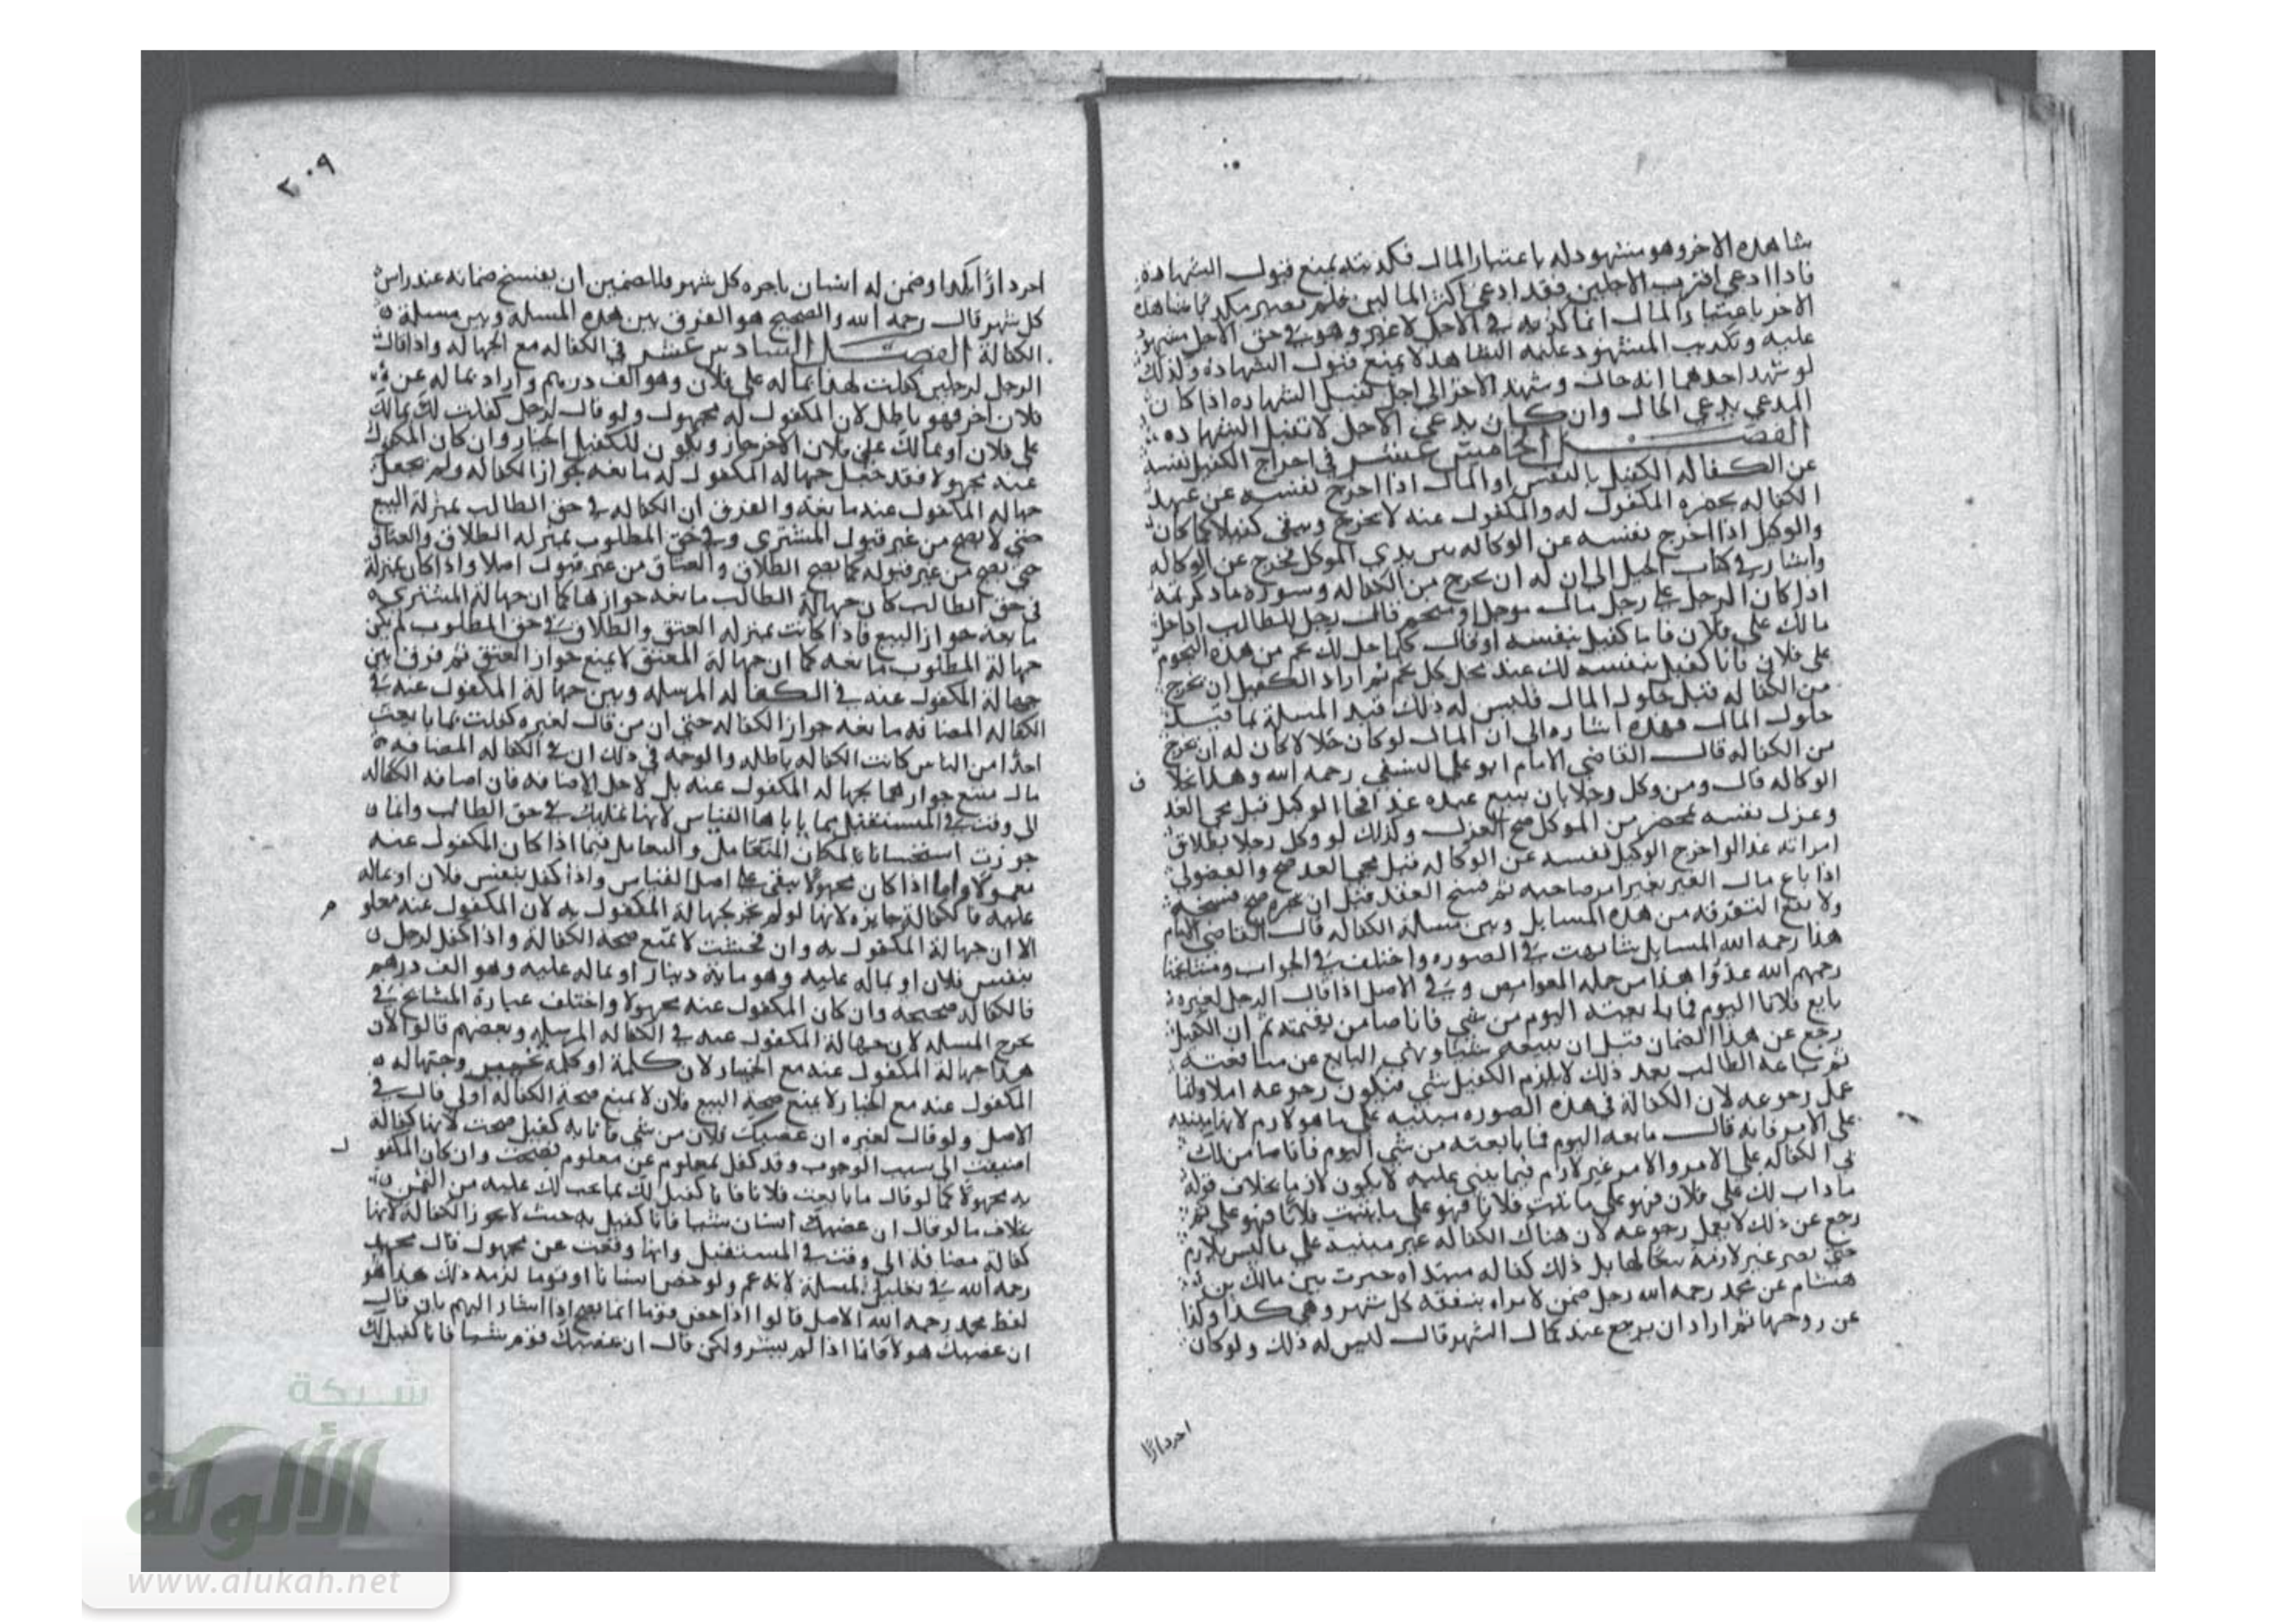 شاهده الاخر وهو مشهود له باعتبار المال فكذبته يمنع قبول الشهادة
فاذا ادعى اقرب الاجلين فقد ادعى اكثر المالين فلم يصر مكذبا شاهده
الاخر باعتبار المال انما كذبه في الاجل لا غير وهو في حق الاجل مشهود
عليه وتكذيب المشهود عليه الشاهد لا يمنع قبول الشهادة ولذلك
لو شهد احدهما انه حال وشهد الاخر الى اجل تقبل الشهاده اذا كان
المدعي يدعي الحال وان كان يدعي الاجل لا تقبل الشهاده
الفصل الخامس عشر في اخراج الكفيل نفسه
عن الكفاله الكفيل بالنفس او المال اذا اخرج نفسه عن عهدة
الكفاله بحضره المكفول له والمكفول عنه لا يخرج ويبقى كفيلا كما كان
والوكيل اذا اخرج نفسه عن الوكاله بين يدي الموكل يخرج عن الوكاله
واشار في كتاب الحيل الى ان له ان يخرج من الكفاله وصوره ما ذكر ثمة
اذا كان الرجل على رجل مال موجل او منجم قال رجل للطالب اذا حل
مالك على فلان فانا كفيل بنفسه او قال كلما حل لك نجم من هذه النجوم
على فلان فانا كفيل بنفسه لك عند محل كل نجم ثم اراد الكفيل ان يخرج
من الكفاله قبل حلول المال فليس له ذلك قيد المسلة بما قبل
حلول المال فهذه اشاره الى ان المال لو كان حالا كان له ان يخرج
من الكفاله قال القاضي الامام ابو علي النسفي رحمه الله وهذا خلا
ف
الوكاله قال ومن وكل رجلا بان يبيع عبده غدا فجا الوكيل قبل مجي الغد
وعزل نفسه بمحضر من الموكل صح العزل وكذلك لو وكل رجلا بطلاق
امراته غدا لو اخرج الوكيل نفسه عن الوكاله قبل مجي الغد صح والفضولي
اذا باع مال الغير بغير امر صاحبه ثم فسخ العقد قبل ان يجيزه صح فسخه
ولا تقع التفرقه من هذه المسايل وبين مسلة الكفاله قال القاضي الامام
هذا رحمه الله المسايل تشابهت في الصوره واختلف في الجواب ومشايخنا
رحمهم الله عدوا هذا من جمله الغوامض وفي الاصل اذا قال الرجل لغيره
بايع فلانا اليوم فما بايعته اليوم من شي فانا ضامن بقيمته ثم ان الكفيل
رجع عن هذا الضمان قبل ان يبيعه شيا ونهي البايع عن مبايعته
ثم بايعه الطالب بعد ذلك لا يلزم الكفيل شي فيكون رجوعه
عمل رجوعه لان الكفالة في هذه الصوره مبنيه على ما هو لازم لانها مبنيه
على الامر فانه قال بايعه اليوم فما بايعته من شي اليوم فانا ضامن لك
في الكفاله على الامر والامر غير لازم فيما بنى عليه لا يكون لازما بخلاف قوله
ما ذاب لك على فلان فهو علي ما بايعت فلانا فهو علي فلانا فهو علي ثم
رجع عن ذلك لا يعمل رجوعه لان هناك الكفاله غير مبنيه على ما ليس بلازم
حتى تصير غير لازمة تبعا لها بل ذلك كفاله مبتداه
هشام عن محمد رحمه الله رجل ضمن لامراه بنفقة كل شهر وكذا
عن زوجها ثم اراد ان يرجع عند كمال الشهر قال ليس له ذلك ولو كان
اجر دارا
٢٠٩
اجر دارا وضمن له انسان باجره كل شهر فللضمين ان يفسخ ضمانه عند راس
كل شهر قال رحمه الله والصحيح هو الفرق بين هذه المسله وبين مسلة
الكفالة الفصل السادس عشر في الكفاله مع الجهاله واذا قال
الرجل لرجلين كفلت لهذا بماله على فلان وهو الف درهم او اراد بماله عن
فلان اخر فهو باطل لان المكفول له مجهول ولو قال لرجل كفلت لك بمالك
على فلان او بمالك على فلان الاخر جاز ويكون للكفيل الخيار وان كان المكفول
عنه مجهولا فقد جعل جهاله المكفول له مانعه جواز الكفاله ولم يجعل
جهاله المكفول عنه مانعه والفرق ان الكفاله في حق الطالب بمنزلة البيع
حتى لا يصح من غير قبول المشتري وفي حق المطلوب بمنزله الطلاق والعتاق
حتى يصح من غير قبوله كما يصح الطلاق والعتاق من غير قبول اصلا واذا كان بمنزلة
في حق الطالب كان جهالة الطالب مانعه جوازها كما ان جهالة المشتري
مانعه جواز البيع فاذا كانت بمنزله العتق والطلاق في حق المطلوب لم يكن
جهالة المطلوب مانعه كما ان جهالة المعتق لا يمنع جواز العتق ثم فرق بين
جهالة المكفول عنه في الكفاله المرسله وبين جهالة المكفول عنه في
الكفاله المضافه مانعه جواز الكفاله حتى ان من قال لغيره كفلت بما بايعت
احدا من الناس كانت الكفاله باطله والوجه في ذلك ان في الكفاله المضافه
مال منع جوازها بجهاله المكفول عنه بل لاجل الاضافه فان اضافه الكفاله
الى وقت في المستقبل مما ياباها القياس لانها تمليك في حق الطالب وانما
جوزت استحسانا لمكان التعامل والتعامل فيما اذا كان المكفول عنه
معلوما واما اذا كان مجهولا يبقى على اصل القياس واذا كفل بنفس فلان او بماله
عليه فالكفالة جايزه لانها لو لم تجز لجهالة المكفول به لان المكفول عنه معلو
م
الا ان جهالة المكفول به وان فحشت لا تمنع صحة الكفالة واذا كفل لرجل
بنفس فلان او بماله عليه وهو ماية دينار او بماله عليه وهو الف درهم
فالكفاله صحيحه وان كان المكفول عنه مجهولا واختلف عبارة المشايخ في
تخرج المسله لان جهالة المكفول عنه في الكفاله المرسله وبعضهم قالوا لان
هذا جهالة المكفول عنه مع الخيار لان كلمة او كلمه تخيير وجهاله
المكفول عنه مع الخيار لا يمنع صحة البيع فلان لا يمنع صحة الكفاله اولى قال في
الاصل ولو قال لغيره ان غصبك فلان من شي فانا به كفيل صحت لانها كفاله
اضيفت الى سبب الوجوب وقد كفل بمعلوم عن معلوم فصحت وان كان المكفو
ل
به مجهولا كما لو قال ما بايعت فلانا فانا كفيل لك بما يجب لك عليه من الثمن
بخلاف ما لو قال ان غصبك انسان شيا فانا كفيل به حيث لا يجوز الكفالة لانها
كفالة مضافه الى وقت في المستقبل وانها وقعت عن مجهول قال محمد
رحمه الله في تعليل المسلة لانه عم ولو خص انسانا او قوما لزمه ذلك هذا هو
لفظ محمد رحمه الله الاصل قالوا اذا خص قوما انما يصح اذا اشار اليهم بان قال
ان غصبك هولا فاما اذا لم يشر ولكن قال ان غصبك قوم شيا فانا كفيل لك
شبكة
الألوكة
www.alukah.net